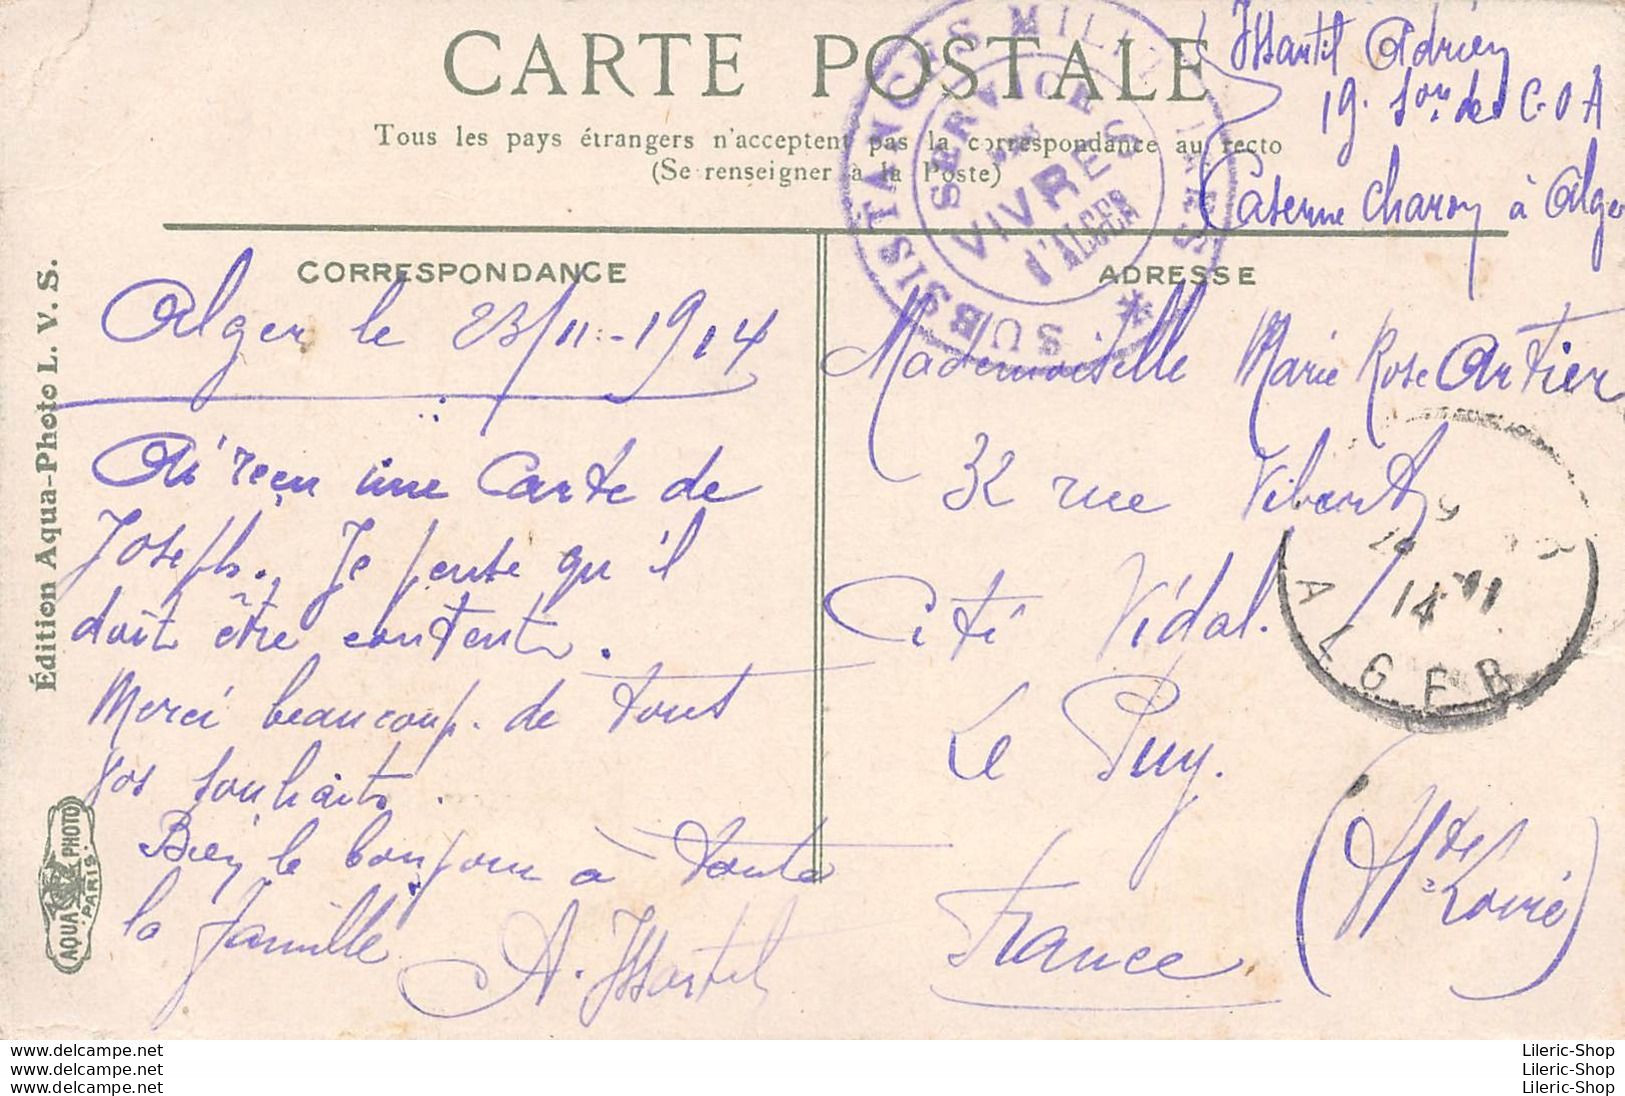 CARTE POSTALE
Tous les pays étrangers n'acceptent pas la correspondance au recto
(Se renseigner à la Poste)
Adrien
19.
de C.O.A
Caserne Charon à Alger
SUBSISTANCES MILITAIRES *
SERVICE
VIVRES
D'ALGER
CORRESPONDANCE
Alger le 23/11-1914
Ai reçu une Carte de
Joseph. Je pense qu'il
doit être content.
Merci beaucoup de tous
vos souhaits.
Bien le bonjour à toute
la famille
A.
ADRESSE
Mademoiselle Marie Rose Artier
32 rue Vibert
Cité Vidal.
Le Puy.
(Hte Loire)
France
ALGER
14
Édition Aqua-Photo L. V. S.
AQUA PHOTO
PARIS
www.delcampe.net
www.delcampe.net
www.delcampe.net
Lileric-Shop
Lileric-Shop
Lileric-Shop